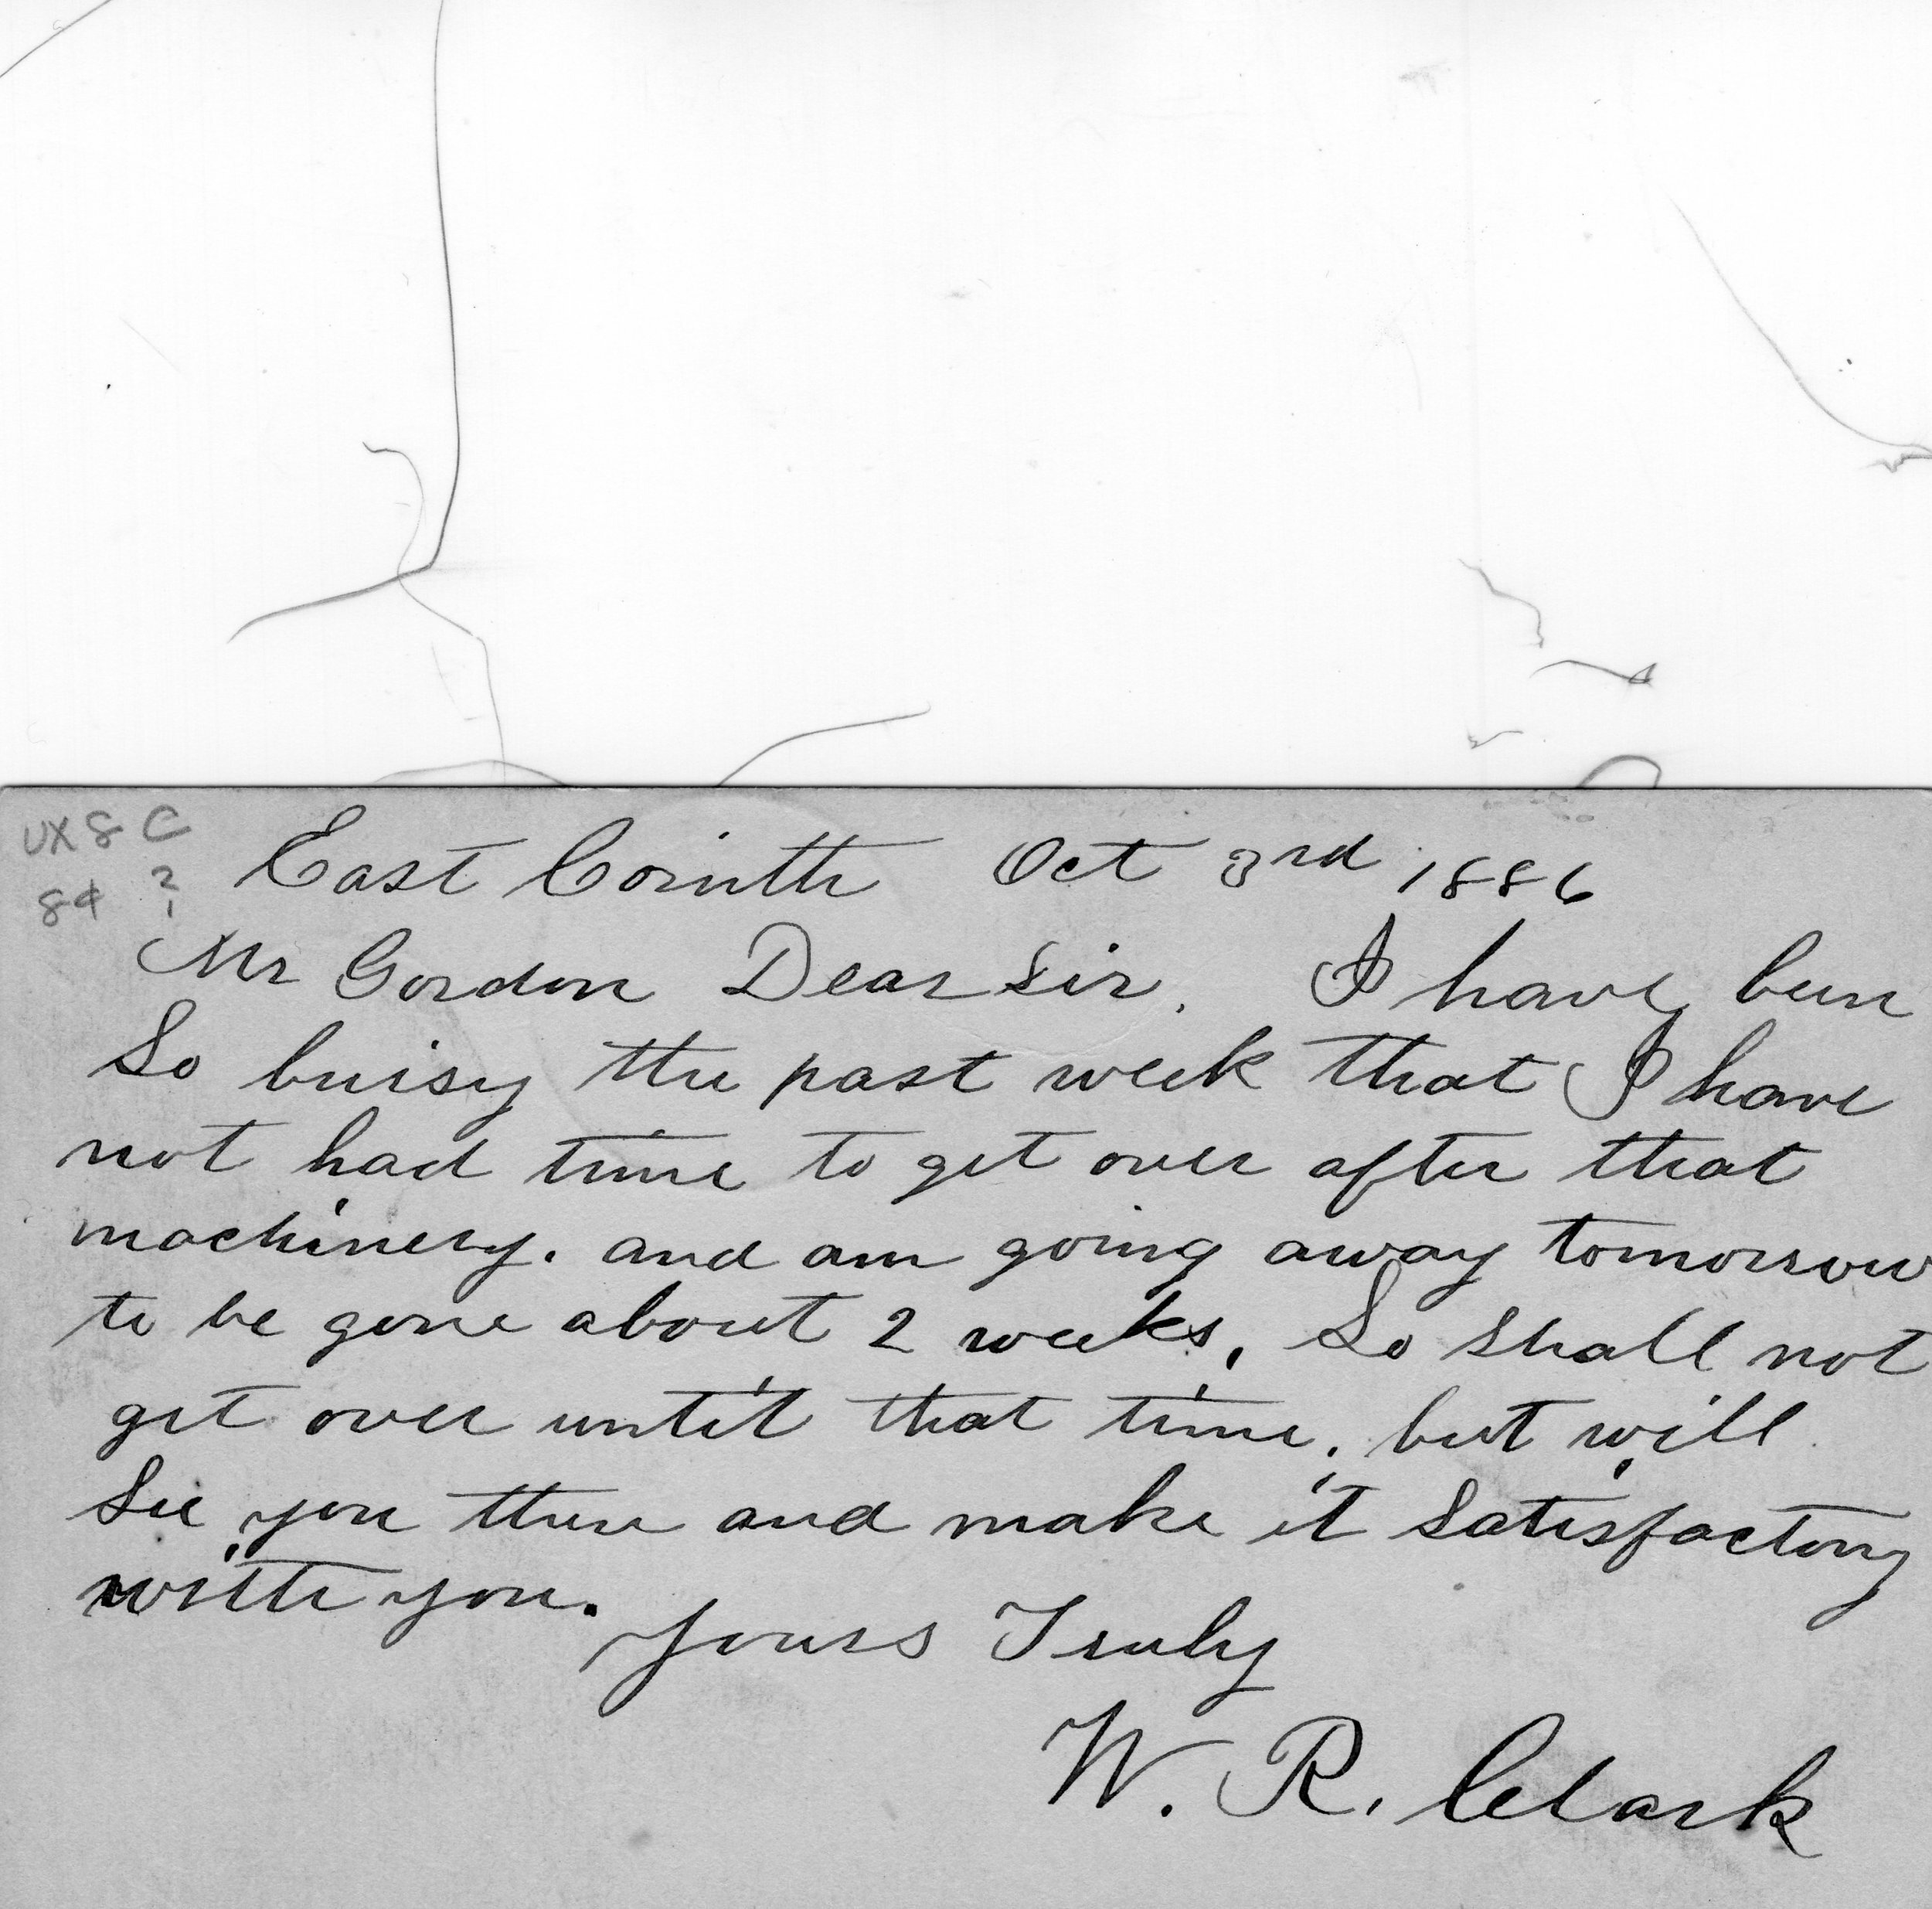 UX8 C
8¢ ?
East Corinth Oct 3rd 1886
Mr Gordon Dear Sir. I have been
So buisy the past week that I have
not had time to get over after that
machinery. and am going away tomorrow
to be gone about 2 weeks, So shall not
get over until that time. but will
See you then and make it Satisfactory
with you.
Yours Truly
W. R. Clark